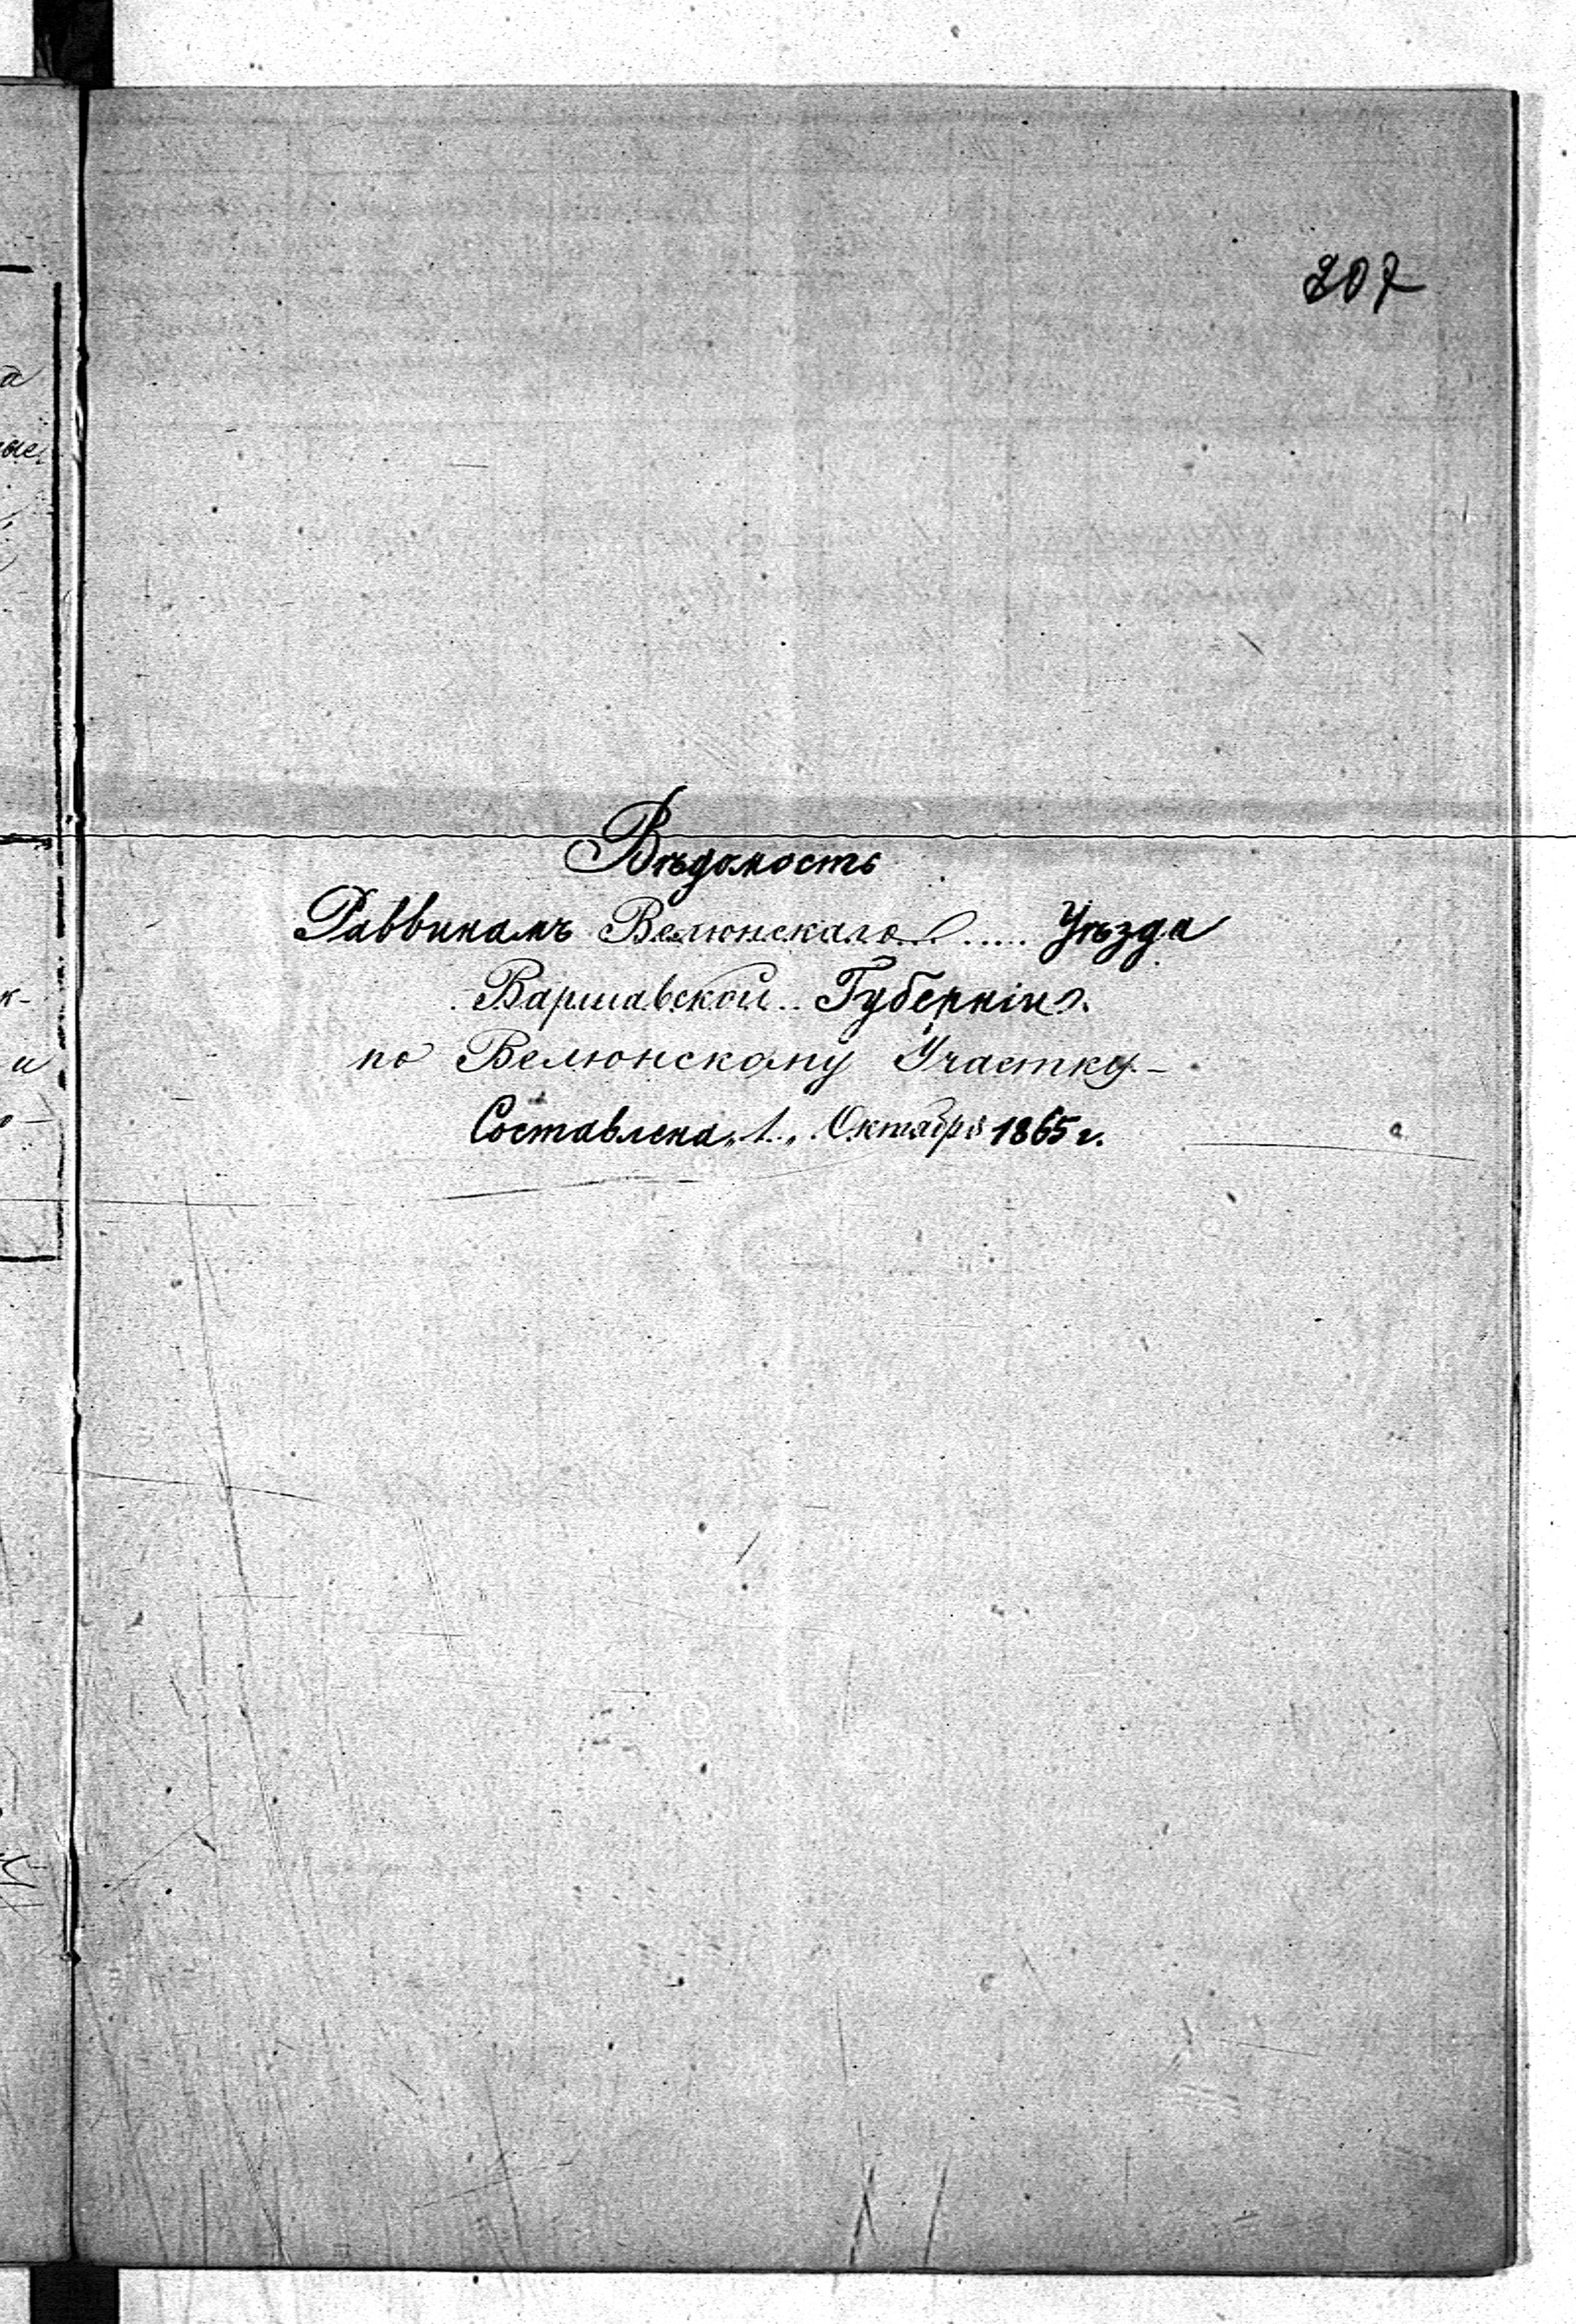 207
Вѣдомость
Раввинамъ Велюнскаго ..... Уѣзда
Варшавской .. Губерніи.
по Велюнскому Участку. -
Составлена „1„ Октября 1865 г.